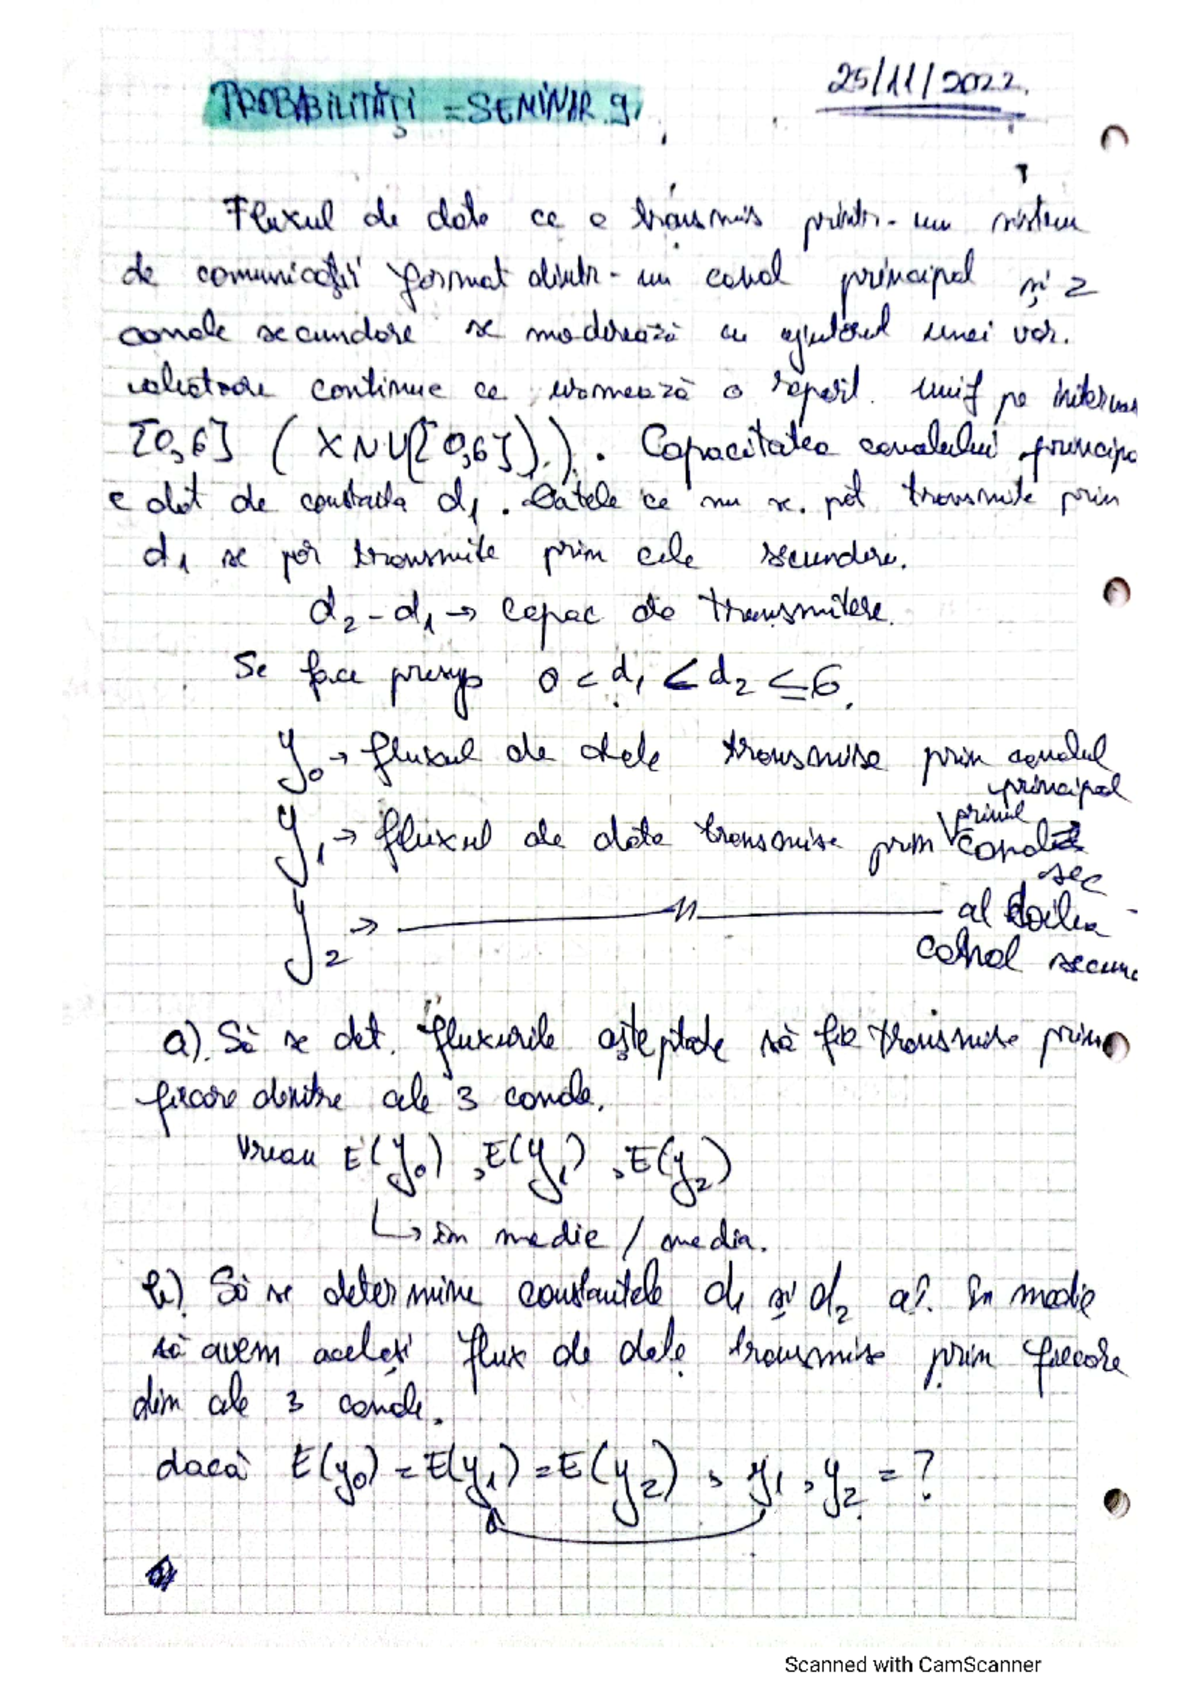 PROBABILITĂȚI = SEMINAR 9
25/11/2022.
Fluxul de date ce e transmis printr-un sistem
de comunicații format dintr-un canal principal și 2
canale secundare se modelează cu ajutorul unei var.
aleatoare continue ce urmează o repart. unif pe interval
[0,6] (X~U([0,6])). Capacitatea canalului principa
e dat de constanta d1. Datele ce nu se pot transmite prin
d1 se pot transmite prin cele secundare.
d2-d1 → capac de transmitere.
Se face presup 0 < d1 < d2 ≤ 6.
y0 → fluxul de date transmise prin canalul
principal
y1 → fluxul de date transmise prin primul canal
sec
y2 → —— 11 —— al doilea
canal secun
a). Să se det. fluxurile așteptate să fie transmise prin
fiecare dintre cele 3 canale.
Vreau E(y0), E(y1), E(y2)
↳ în medie / media.
b) Să se determine constantele d1 și d2 aî. în medie
să avem același flux de date transmise prin fiecare
din cele 3 canale.
dacă E(y0) = E(y1) = E(y2), y1, y2 = ?
Scanned with CamScanner